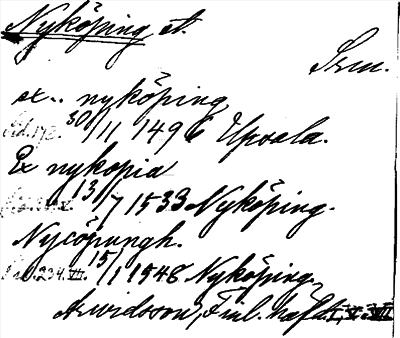 Nyköping, st.
Srm.
ex.. nyköping
30/11 1496 Upsala.
Ex nykopia
13/7 1533 Nyköping.
Nycöpungh.
234. VII. 15/1 1548 Nyköping
Arwidsson, Finl. häfd. I, V, VII